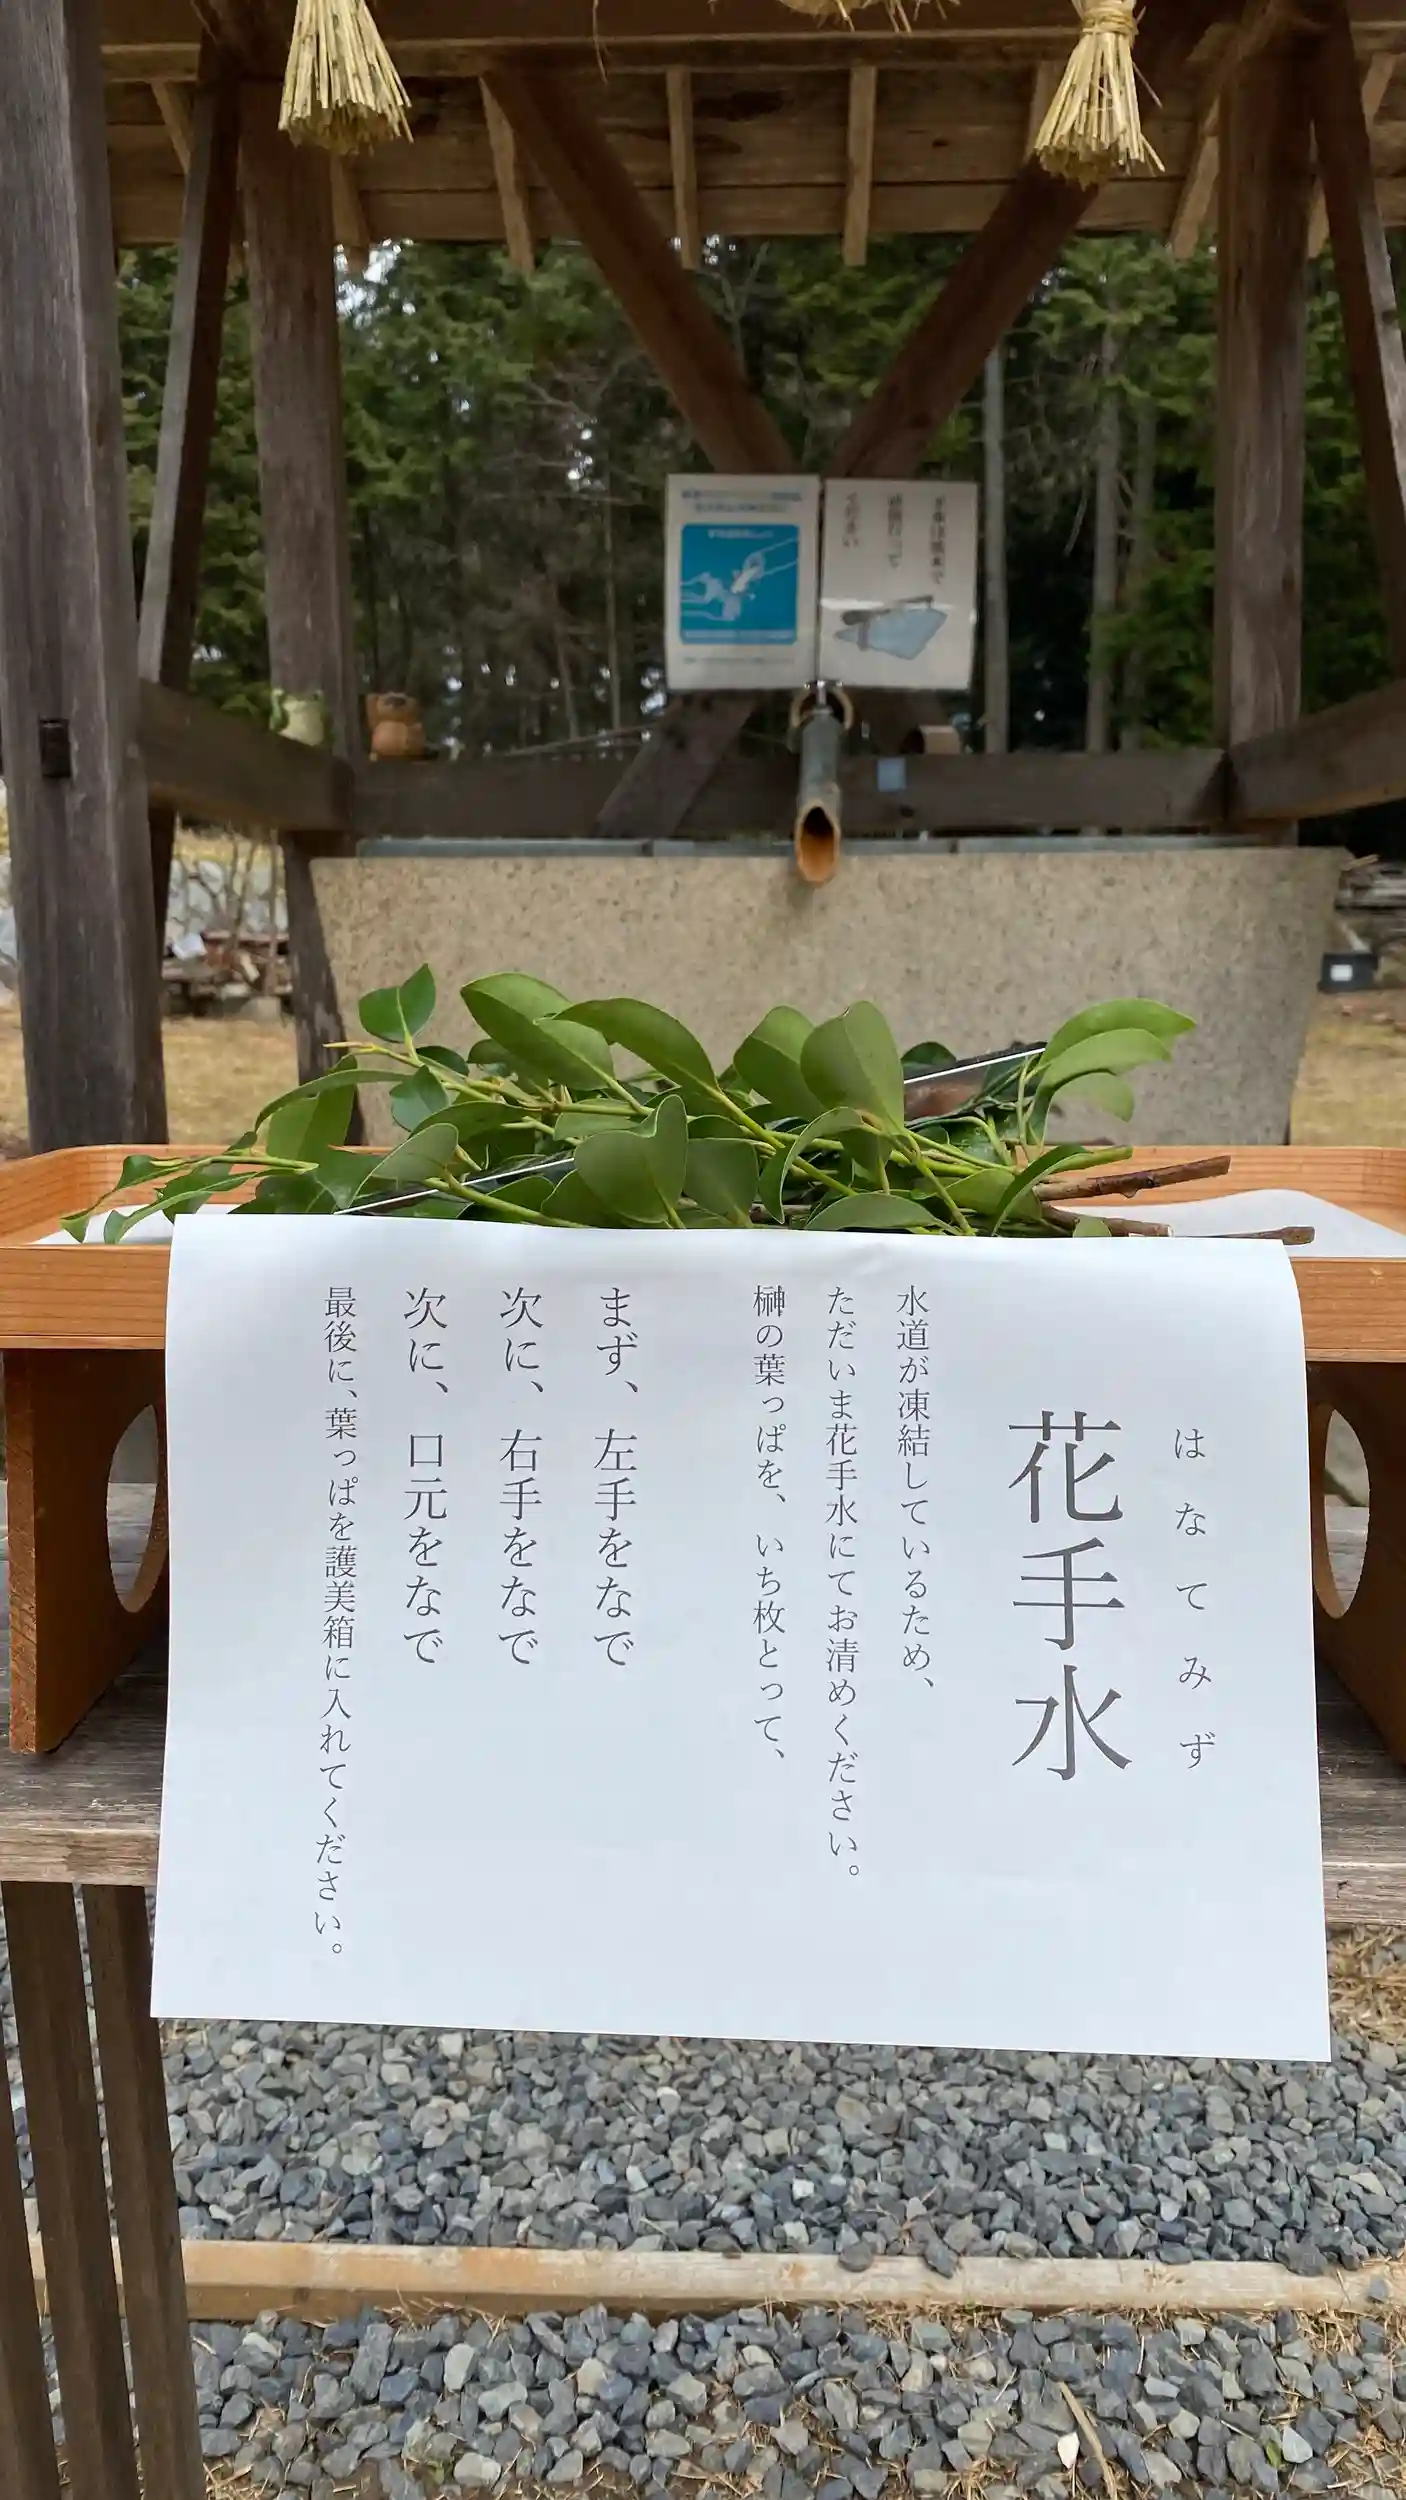 はなてみず
花手水
水道が凍結しているため、
ただいま花手水にてお清めください。
榊の葉っぱを、いち枚とって、
まず、左手をなで
次に、右手をなで
次に、口元をなで
最後に、葉っぱを護美箱に入れてください。
ください